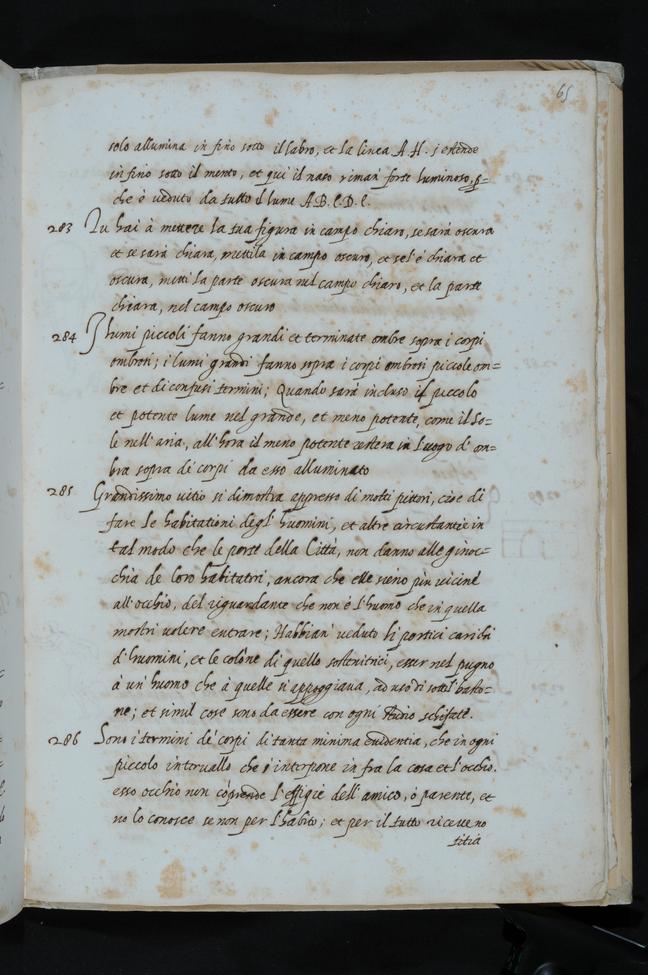 65
solo allumina in fino sotto il labro, et la linea A.H. s'estende
in fino sotto il mento, et qui il naso riman' forte luminoso, p=
che è veduto da tutto il lume A.B.C.D.E.
283 Tu hai à mettere la tua figura in campo chiaro, se sarà oscura
et se sarà chiara, mettila in campo oscuro, et se l'è chiara et
oscura, metti la parte oscura nel campo chiaro, et la parte
chiara, nel campo oscuro
284 I lumi piccoli fanno grandi et terminate ombre sopra i corpi
ombrosi; i lumi grandi fanno sopra i corpi ombrosi piccole om=
bre et di confusi termini; Quando sarà incluso il piccolo
et potente lume nel grande, et meno potente, come il So=
le nell'aria, all'hora il meno potente resterà in luogo d'om=
bra sopra di corpi da esso alluminato
285 Grandissimo vitio si dimostra appresso di molti pittori, cioè di
fare le habitationi degl'huomini, et altre circustantie in
tal modo che le porte della Città, non danno alle ginoc=
chia de loro habitatori, ancora che elle sieno più vicine
all'occhio, del riguardante che non è l'huomo che in quella
mostri volere entrare; Habbian' veduto li portici carichi
d'huomini, et le colône di quello sostenitrici, esser nel pugno
à un'huomo che à quelle s'appoggiava, ad uso di sottil basto=
ne; et simil cose sono da essere con ogni studio schifate.
286 Sono i termini de' corpi di tanta minima evidentia, che in ogni
piccolo intervallo che s'interpone in fra la cosa et l'occhio.
esso occhio non côprende l'effigie dell'amico, ò parente, et
no lo conosce se non per l'habito; et per il tutto riceve no
titia